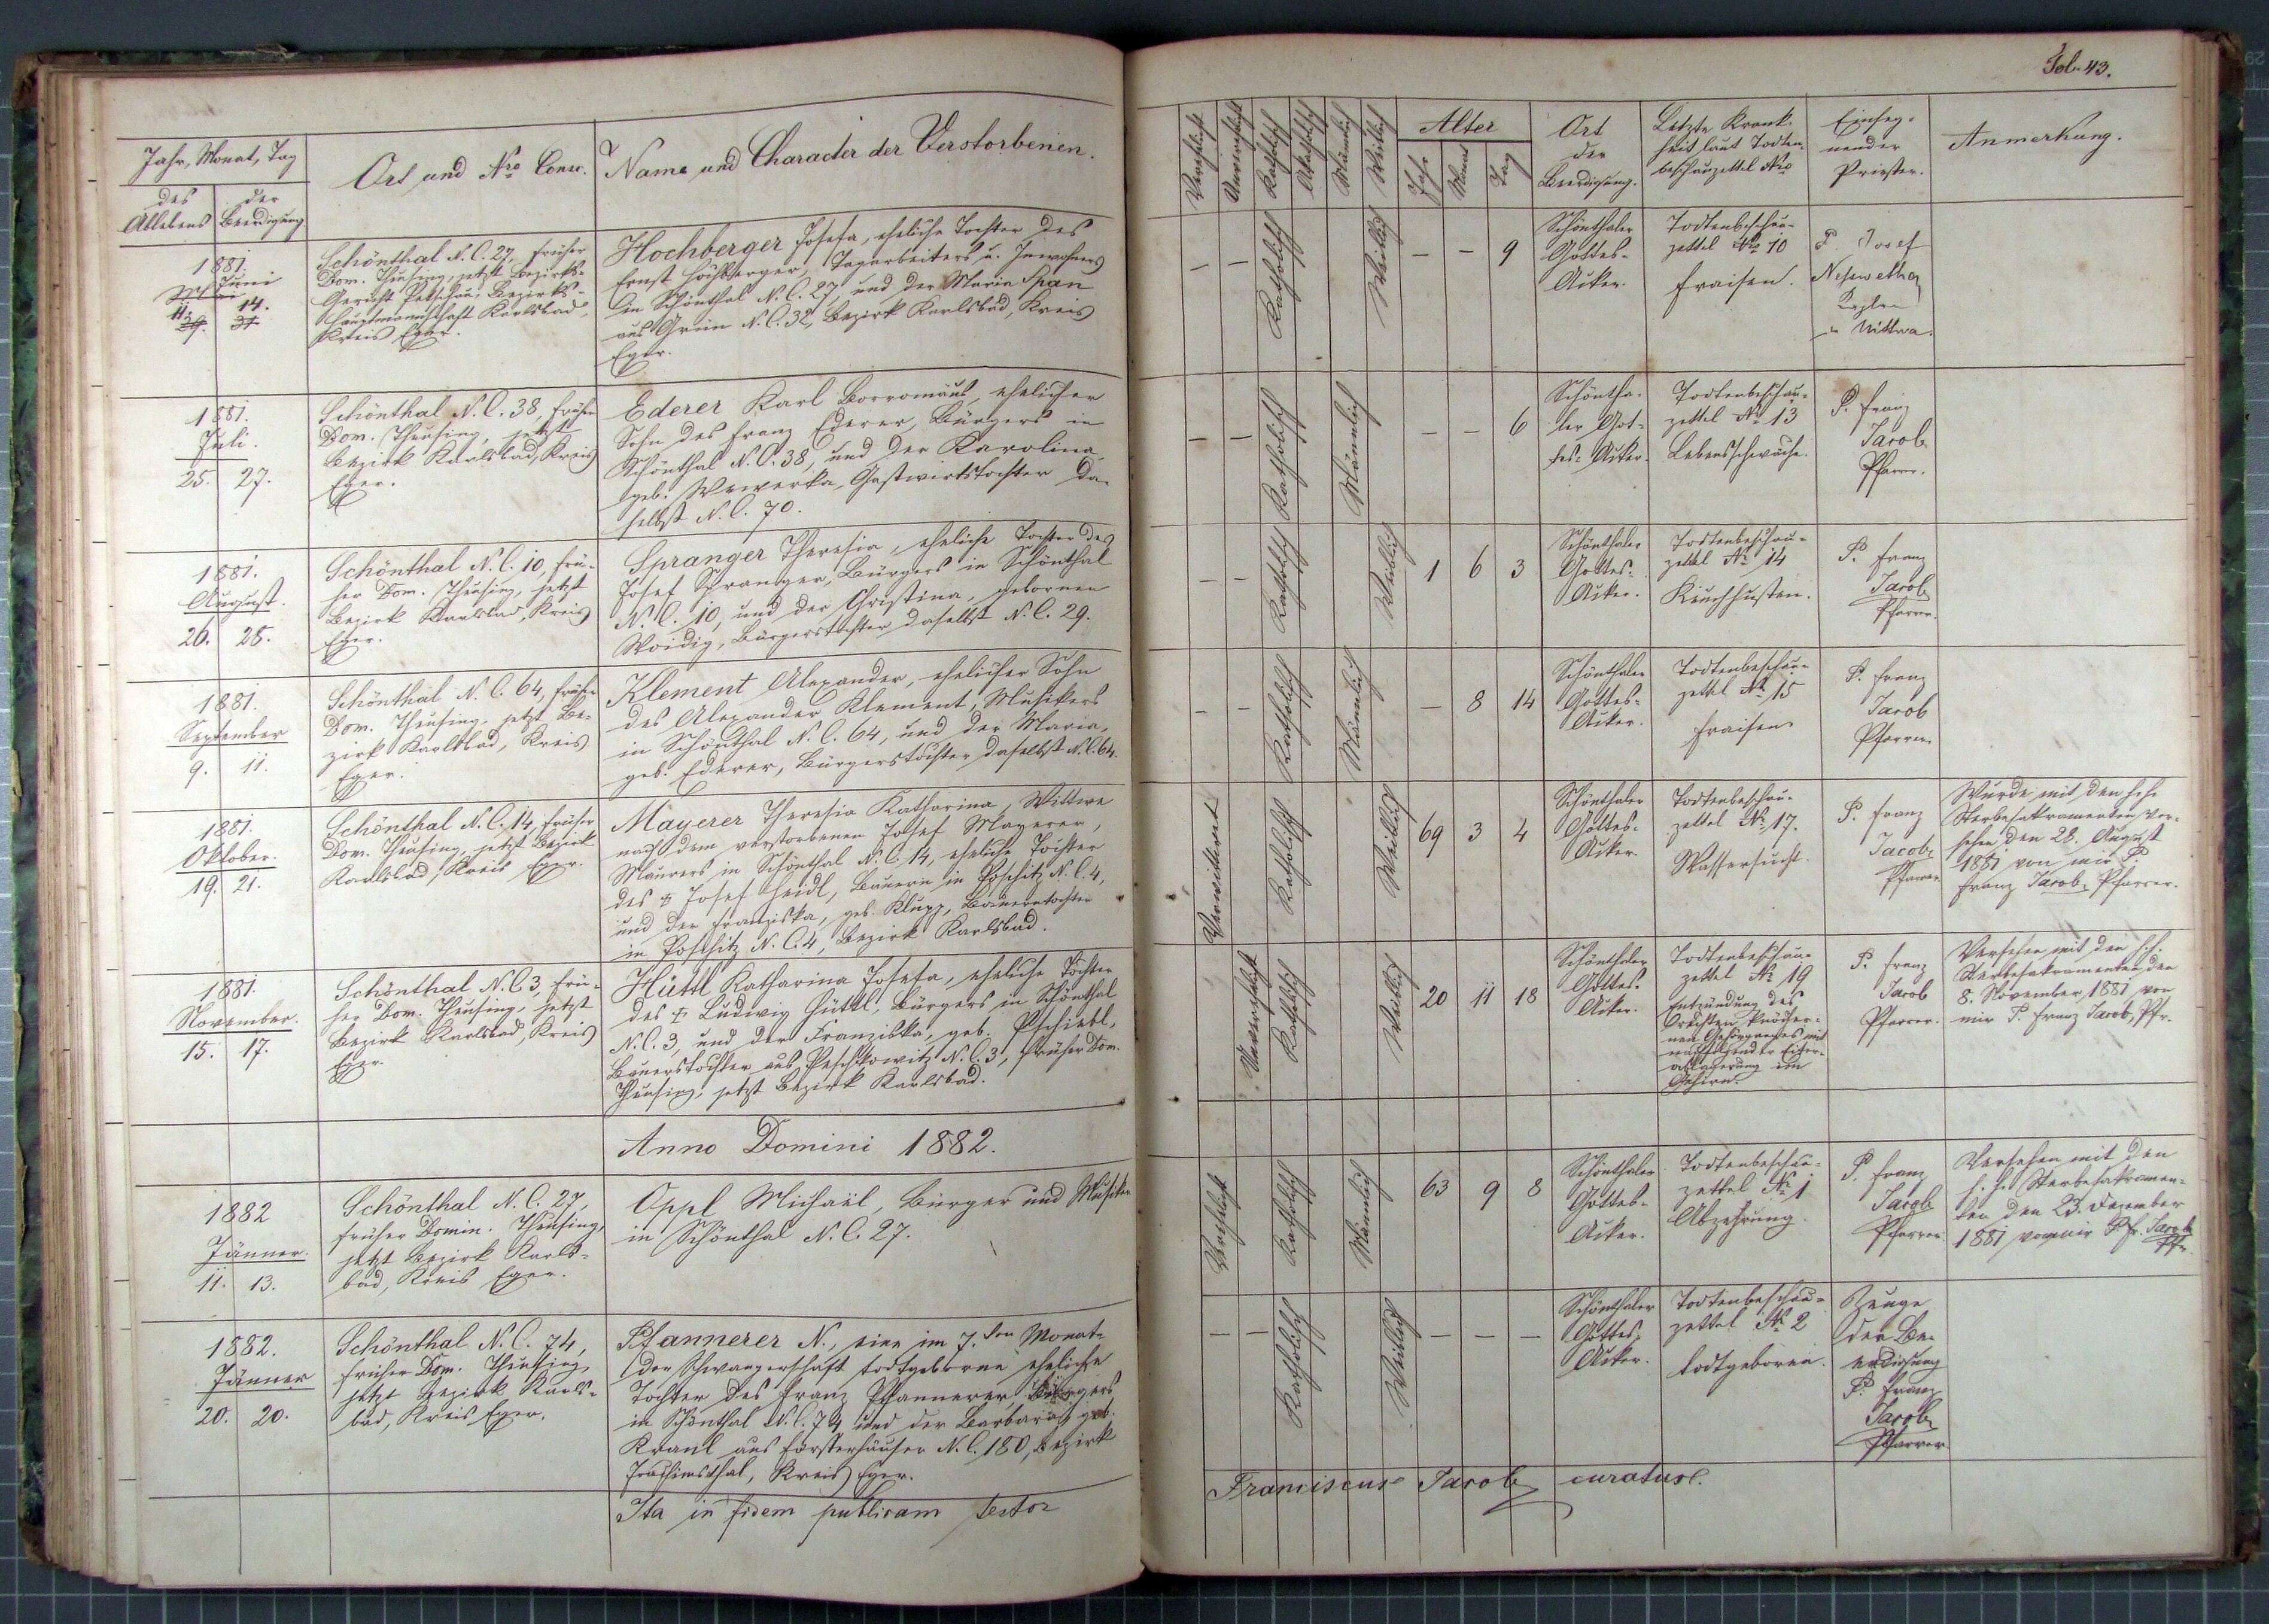 Fol. 43.
Jahr, Monat, Tag
des Ablebens
der Beerdigung
Ort und Nro Consc.
Name und Character der Verstorbenen.
Verehelicht
Unverehelicht
Katholisch
Akatholisch
Männlich
Weiblich
Alter
Jahr
Monat
Tag
Ort
der
Beerdigung.
Letzte Krank-
heit laut Todten-
beschauzettel Nro
Einseg-
nender
Priester.
Anmerkung.
1881
Juni
11. 14.
29. 31
Schönthal N.C. 27, früher
Dom. Theusing, jetzt Bezirks-
Gericht Petschau, Bezirks-
hauptmannschaft Karlsbad,
Kreis Eger.
Hochberger Josefa, eheliche Tochter des
Ernst Hochberger, Tagarbeiters u. Inwohners
in Schönthal N.C. 27, und der Maria Span
aus Grün N.C. 32, Bezirk Karlsbad, Kreis
Eger.
– –
Katholisch
Weiblich
– – 9
Schönthaler
Gottes-
Acker.
Todtenbeschau-
zettel No 10
Fraisen.
P. Josef
1881.
Juli.
25. 27.
Schönthal N.C. 38, früher
Dom. Theusing, jetzt
Bezirk Karlsbad, Kreis
Eger.
Ederer Karl Borromäus, ehelicher
Sohn des Franz Ederer, Bürgers in
Schönthal N.C. 38, und der Karolina
geb. Wewerka, Gastwirtstochter da-
selbst N.C. 70.
– –
Katholisch
Männlich
– – 6
Schöntha-
ler Got-
tes-Acker.
Todtenbeschau-
zettel No 13
Lebensschwäche.
P. Franz
Jacob
Pfarrer.
1881.
August.
26. 28.
Schönthal N.C. 10, frü-
her Dom. Theusing, jetzt
Bezirk Karlsbad, Kreis
Eger.
Spranger Theresia, eheliche Tochter des
Josef Spranger, Bürgers in Schönthal
N.C. 10, und der Christina, gebornen
Woidig, Bürgerstochter daselbst N.C. 29.
– –
Katholisch
Weiblich
1 6 3
Schönthaler
Gottes-
Acker.
Todtenbeschau-
zettel No 14
Keuchhusten.
P. Franz
Jacob
Pfarrer.
1881.
September
9. 11.
Schönthal N.C. 64, früher
Dom. Theusing, jetzt Be-
zirk Karlsbad, Kreis
Eger.
Klement Alexander, ehelicher Sohn
des Alexander Klement, Musikers
in Schönthal N.C. 64, und der Maria,
geb. Ederer, Bürgerstochter daselbst N.C. 64.
– –
Katholisch
Männlich
– 8 14
Schönthaler
Gottes-
Acker.
Todtenbeschau-
zettel No 15
Fraisen
P. Franz
Jacob
Pfarrer
1881.
Oktober.
19. 21.
Schönthal N.C. 14, früher
Dom. Theusing, jetzt Bezirk
Karlsbad, Kreis Eger.
Mayerer Theresia Katharina, Wittwe
nach dem verstorbenen Josef Mayerer,
Maurers in Schönthal N.C. 14, eheliche Tochter
des † Josef Heidl, Bauern in Poschitz N.C. 4,
und der Franziska, geb. Klupp, Bauerntochter
in Poschitz N.C. 4, Bezirk Karlsbad.
Verwittwet
Katholisch
Weiblich
69 3 4
Schönthaler
Gottes-
Acker.
Todtenbeschau-
zettel No 17.
Wassersucht.
P. Franz
Jacob
Pfarrer
Wurde mit den hh.
Sterbesakramenten ver-
sehen den 28. August
1881 von mir P.
Franz Jacob, Pfarrer.
1881.
November.
15. 17.
Schönthal N.C. 3, frü-
her Dom. Theusing, jetzt
Bezirk Karlsbad, Kreis
Eger.
Hüttl Katharina Josefa, eheliche Tochter
des † Ludwig Hüttl, Bürgers in Schönthal
N.C. 3 und der Franziska, geb. Pschiebl,
Bauerstochter aus Peschkowitz N.C. 3, früher Dom.
Theusing, jetzt Bezirk Karlsbad.
Unverehelicht
Katholisch
Weiblich
20 11 18
Schönthaler
Gottes-
Acker.
Todtenbeschau-
zettel No 19
Entzündung des
knöcher-
nen Gehörganges mit
nachfolgender Eiter-
ablagerung im
Gehirn.
P. Franz
Jacob
Pfarrer.
Versehen mit den h.h.
Sterbesakramenten den
8. November 1881 von
mir P. Franz Jacob, Pfr.
Anno Domini 1882.
1882
Jänner.
11. 13.
Schönthal N.C. 27,
früher Domin. Theusing,
jetzt Bezirk Karls-
bad, Kreis Eger.
Oppl Michael, Bürger und Musiker
in Schönthal N.C. 27.
Verehelicht
Katholisch
Männlich
63 9 8
Schönthaler
Gottes-
Acker.
Todtenbeschau-
zettel No 1
Abzehrung.
P. Franz
Jacob
Pfarrer.
Versehen mit den
h.h. Sterbesakramen-
ten den 23. Dezember
1881 von mir P. Fr. Jacob
Pfr.
1882.
Jänner
20. 20.
Schönthal N.C. 74,
früher Dom. Theusing,
jetzt Bezirk Karls-
bad, Kreis Eger.
Pfannerer N., eine im 7.ten Monate
der Schwangerschaft todtgeborne eheliche
Tochter des Franz Pfannerer Bürgers
in Schönthal N.C. 74 und der Barbara, geb.
Kraul aus Försterhäuser N.C. 180, Bezirk
Joachimsthal, Kreis Eger.
– –
Katholisch
Weiblich
– – –
Schönthaler
Gottes-
Acker.
Todtenbeschau-
zettel No 2
todtgeboren.
Zeuge
der Be-
erdigung
P. Franz
Jacob
Pfarrer.
Ita in fidem publicam testor
Franciscus Jacob curatus.